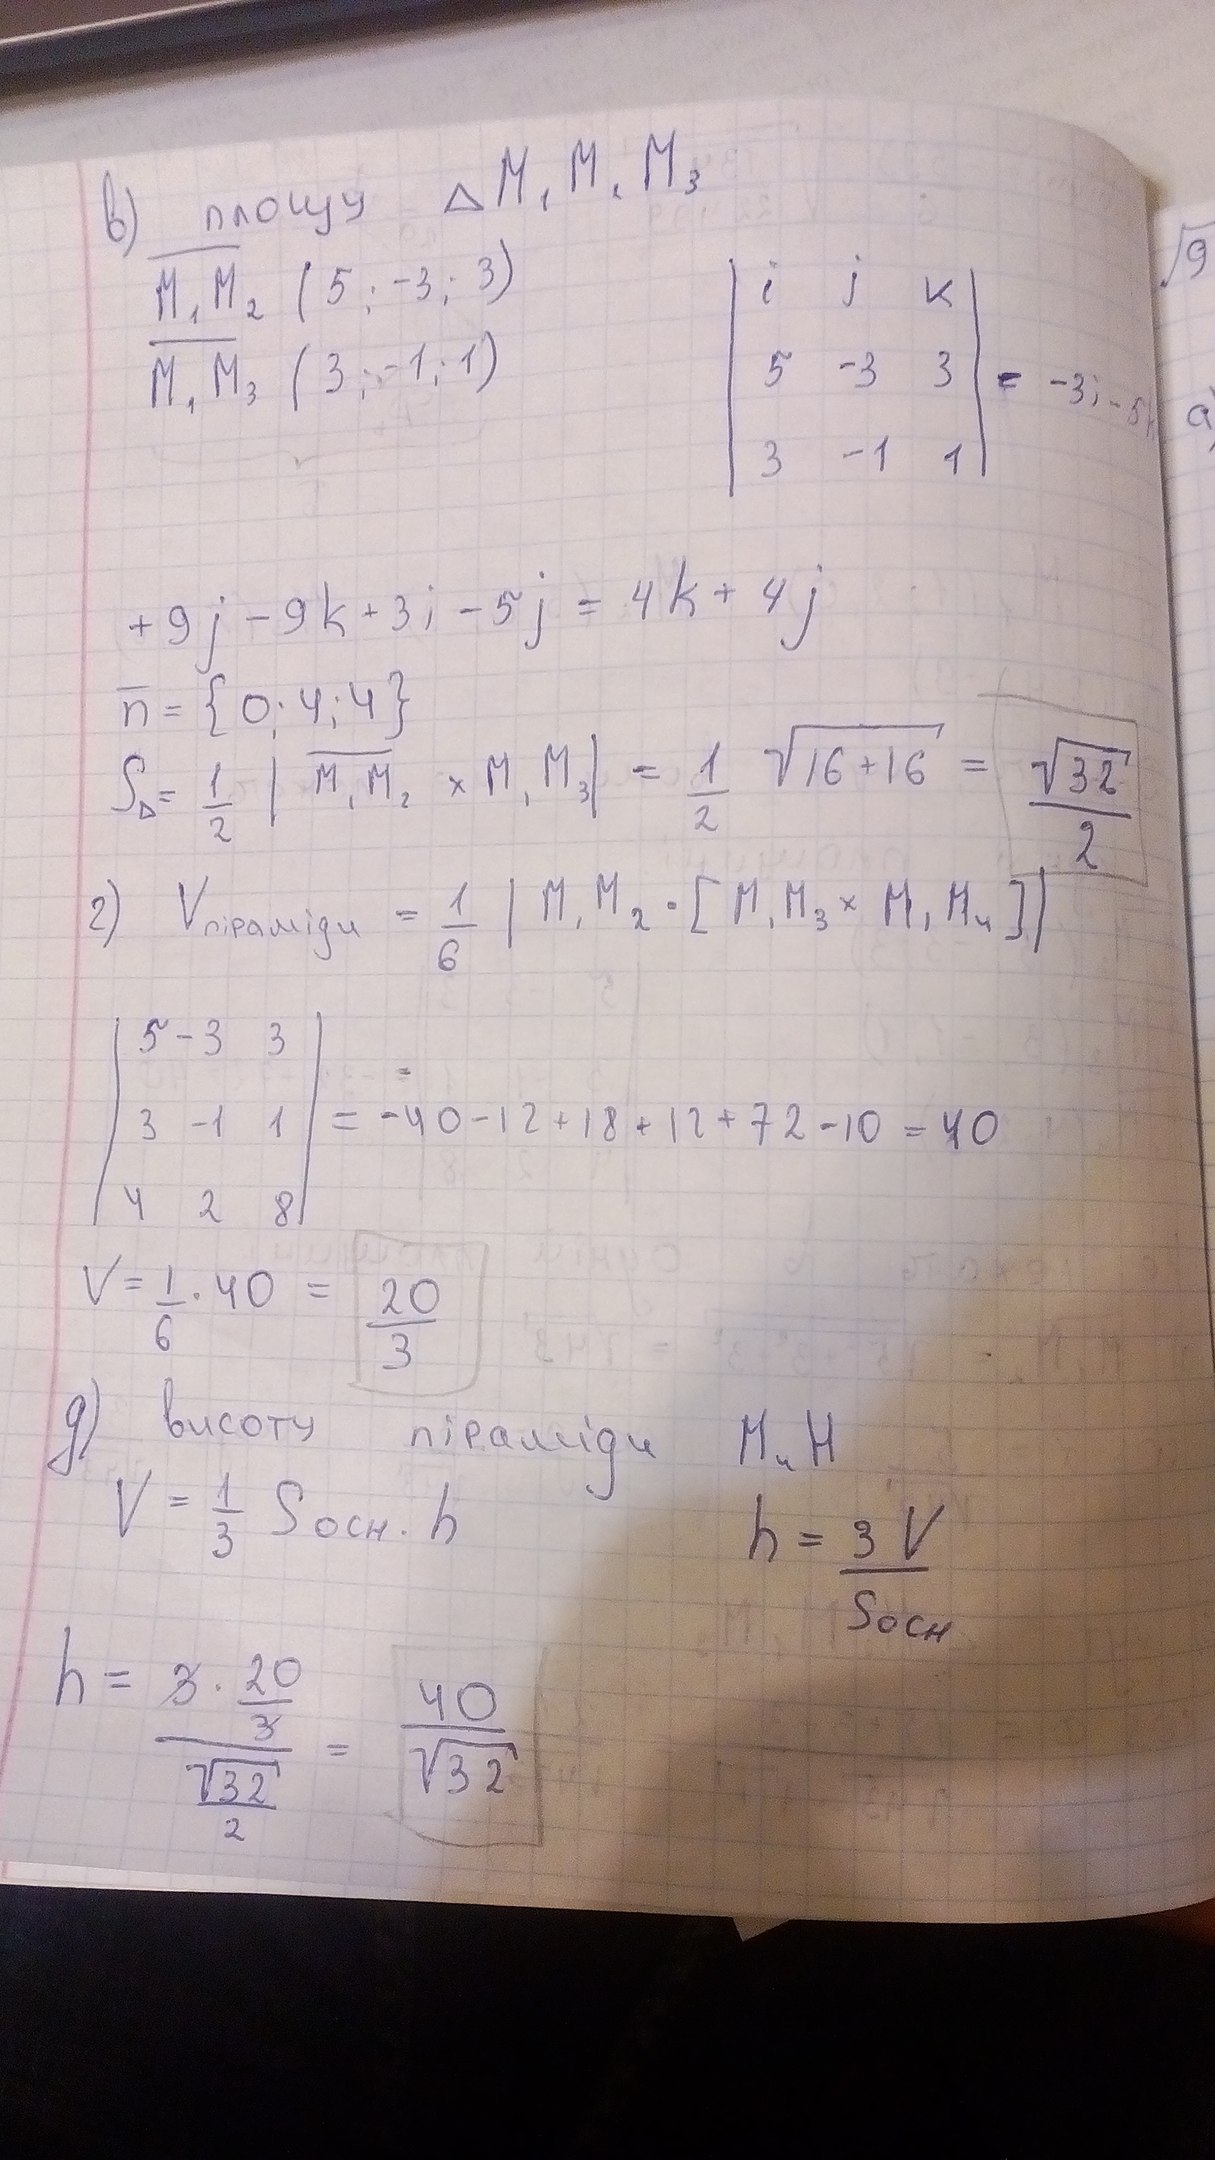 в) площу Δ M₁ M₂ M₃
M₁M₂ (5; -3; 3)
M₁M₃ (3; -1; 1)
| i j k |
| 5 -3 3 | = -3i - 5k
| 3 -1 1 |
+ 9j - 9k + 3i - 5j = 4k + 4j
n = {0; 4; 4}
S△ = 1/2 | M₁M₂ × M₁M₃ | = 1/2 √16+16 = √32/2
г) Vпіраміди = 1/6 | M₁M₂ · [M₁M₃ × M₁M₄] |
| 5 -3 3 |
| 3 -1 1 | = -40 - 12 + 18 + 12 + 72 - 10 = 40
| 4 2 8 |
V = 1/6 · 40 = 20/3
д) висоту піраміди M₄H
V = 1/3 Sосн · h
h = 3V/Sосн
h = 3 · 20/3 / √32/2 = 40/√32
√9
а)